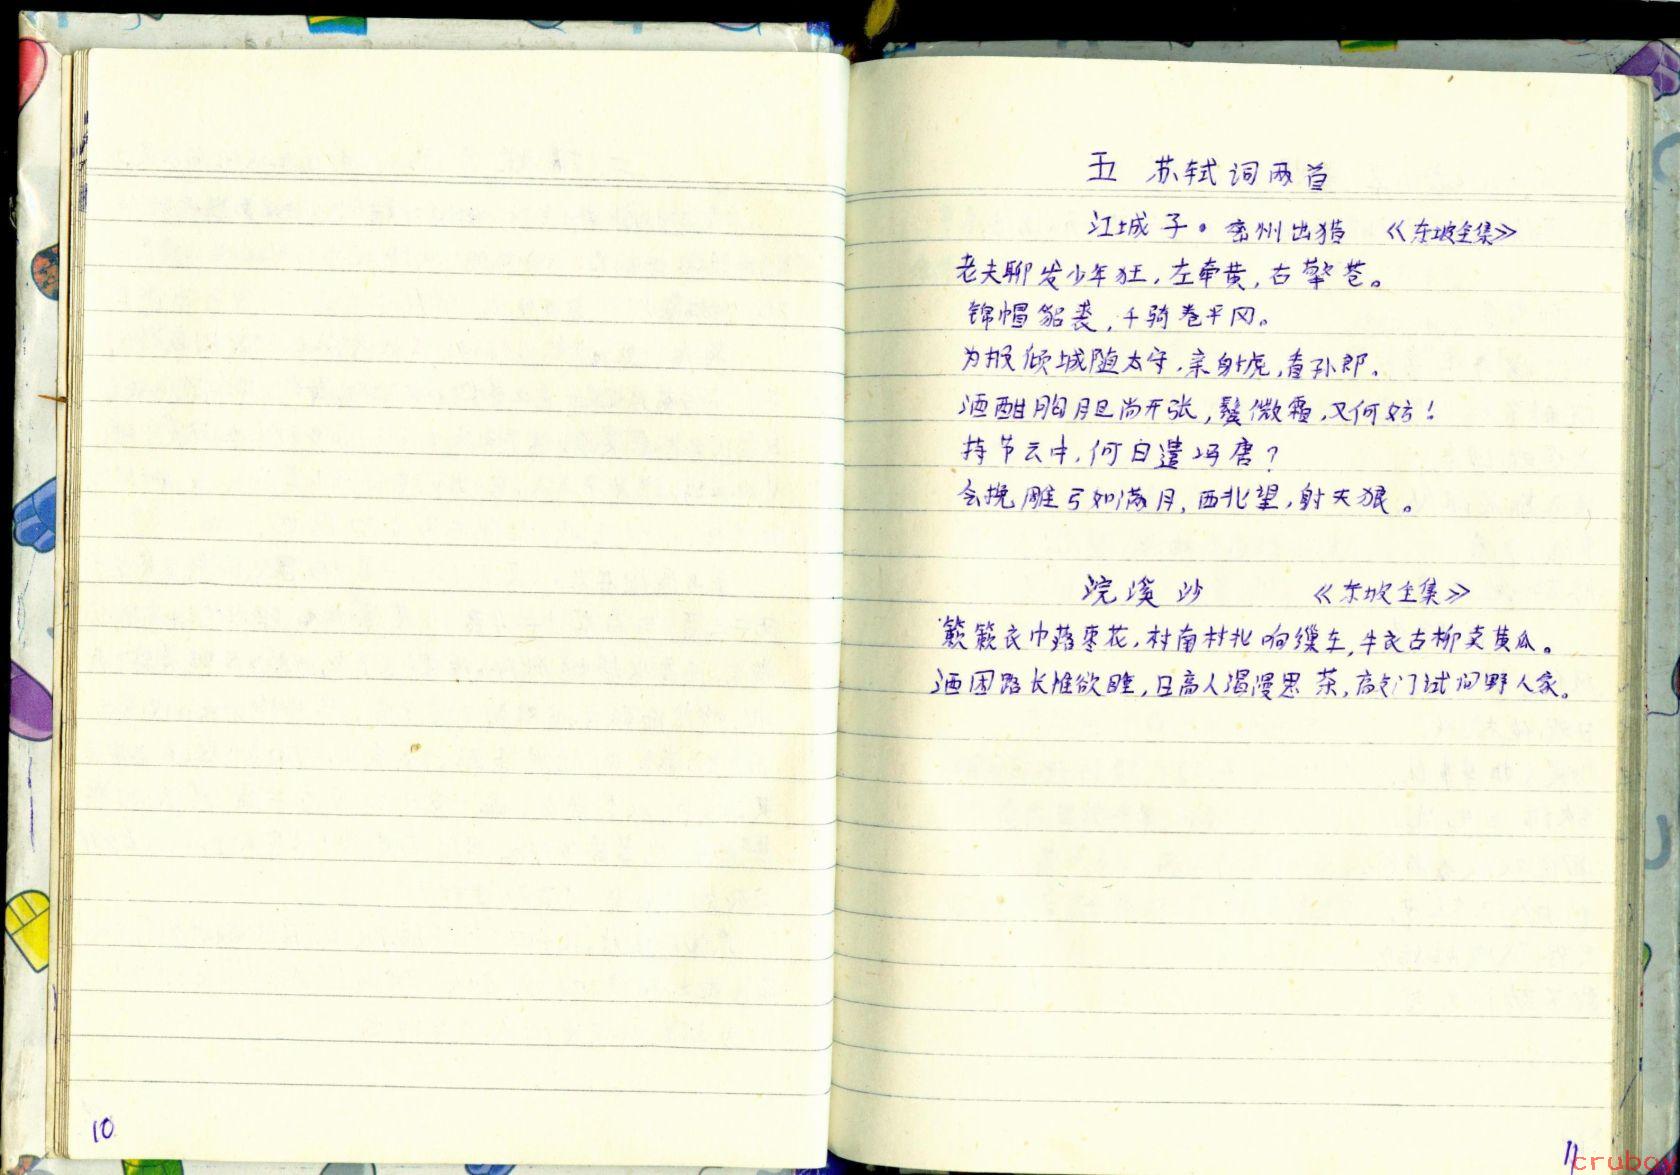 五 苏轼词两首
江城子·密州出猎 《东坡全集》
老夫聊发少年狂,左牵黄,右擎苍。
锦帽貂裘,千骑卷平冈。
为报倾城随太守,亲射虎,看孙郎。
酒酣胸胆尚开张,鬓微霜,又何妨!
持节云中,何日遣冯唐?
会挽雕弓如满月,西北望,射天狼。
浣溪沙 《东坡全集》
簌簌衣巾落枣花,村南村北响缫车,牛衣古柳卖黄瓜。
酒困路长惟欲睡,日高人渴漫思茶,敲门试问野人家。
10
11